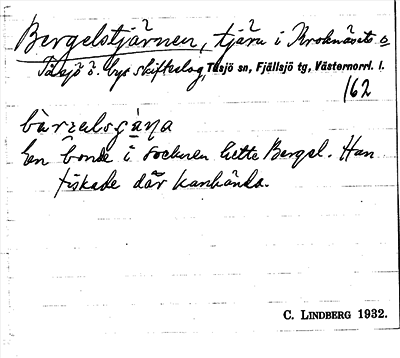 Bergelstjärnen, tjärn i Kroknäsets o
Tåsjö ö. bys skifteslag, Tåsjö sn, Fjällsjö tg, Västernorrl. l.
162
En bonde i socknen hette Bergel. Han
fiskade där kanhända.
C. LINDBERG 1932.